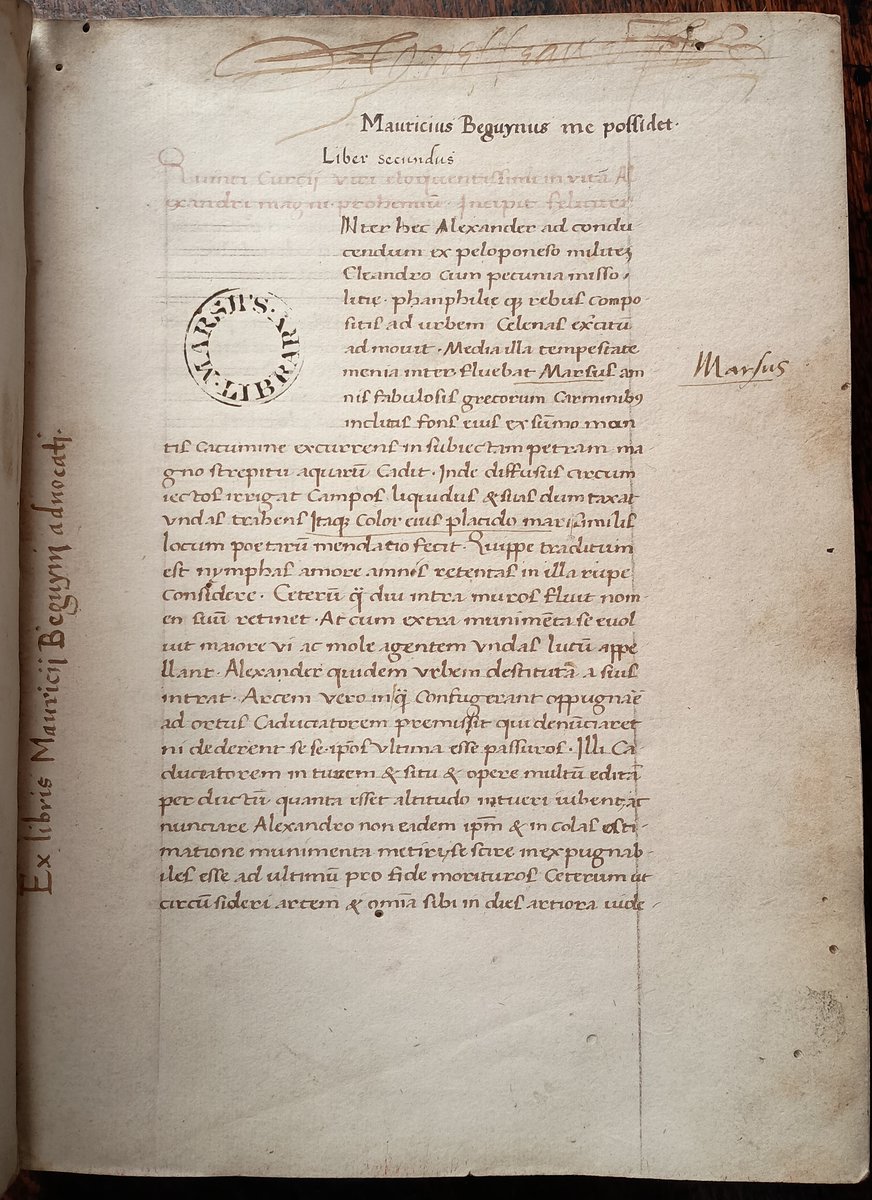 Mauricius Beguynus me possidet.
Liber secundus
Quinti Curcij viri eloquentissimi in vitā Al
exandri magni prohemiū. Incipit feliciter
INter hec Alexander ad condu
cendum ex peloponeso militeʒ
Cleandro cum pecunia misso,
litie. phanphilie qʒ rebus compo
sitis ad urbem Celenas exc̄itū
admovit. Media illa tempestate
menia inter fluebat Marsus am
nis fabulosis grecorum Carminibꝰ
inclitus fons eius ex sūmo mon
tis Cacumine excurrens in subiectam petram ma
gno strepitu aquarū Cadit. Inde diffusus circum
iectos irrigat Campos liquidus & suas dum taxat
vndas trahens Itaqʒ Color eius placido mari similis
locum poetarū mendatio fecit. Quippe traditum
est nymphas amore amnis retentas in illa rupe
Considere. Ceterū q̄ diu intra muros fluit nom
en suū retinet. At cum extra munimēta se evol
uit maiore vi ac mole agentem vndas lucū appe
llant. Alexander quidem vrbem destitutā a suis
intrat. Arcem vero in q̄ Confugerant oppugnāe
ad ortus Caduciatorem premissit qui denūciaret
ni dederent se se ip̄os vltima esse passuros. Illi Ca
duceatorem in turrem & situ & opere multū editā
per ductū quanta esset altitudo intueri iubent, ac
nunciare Alexandro non eadem ip̄m & in colas esti-
matione munimenta metiri, se scire inexpugnab-
iles esse ad ultimū pro fide morituros Ceterum ut
circū sideri arcem & omīa sibi in dies artiora uide-
Marsus
MARSH'S LIBRARY
Ex libris Mauricij Beguyni advocatj.